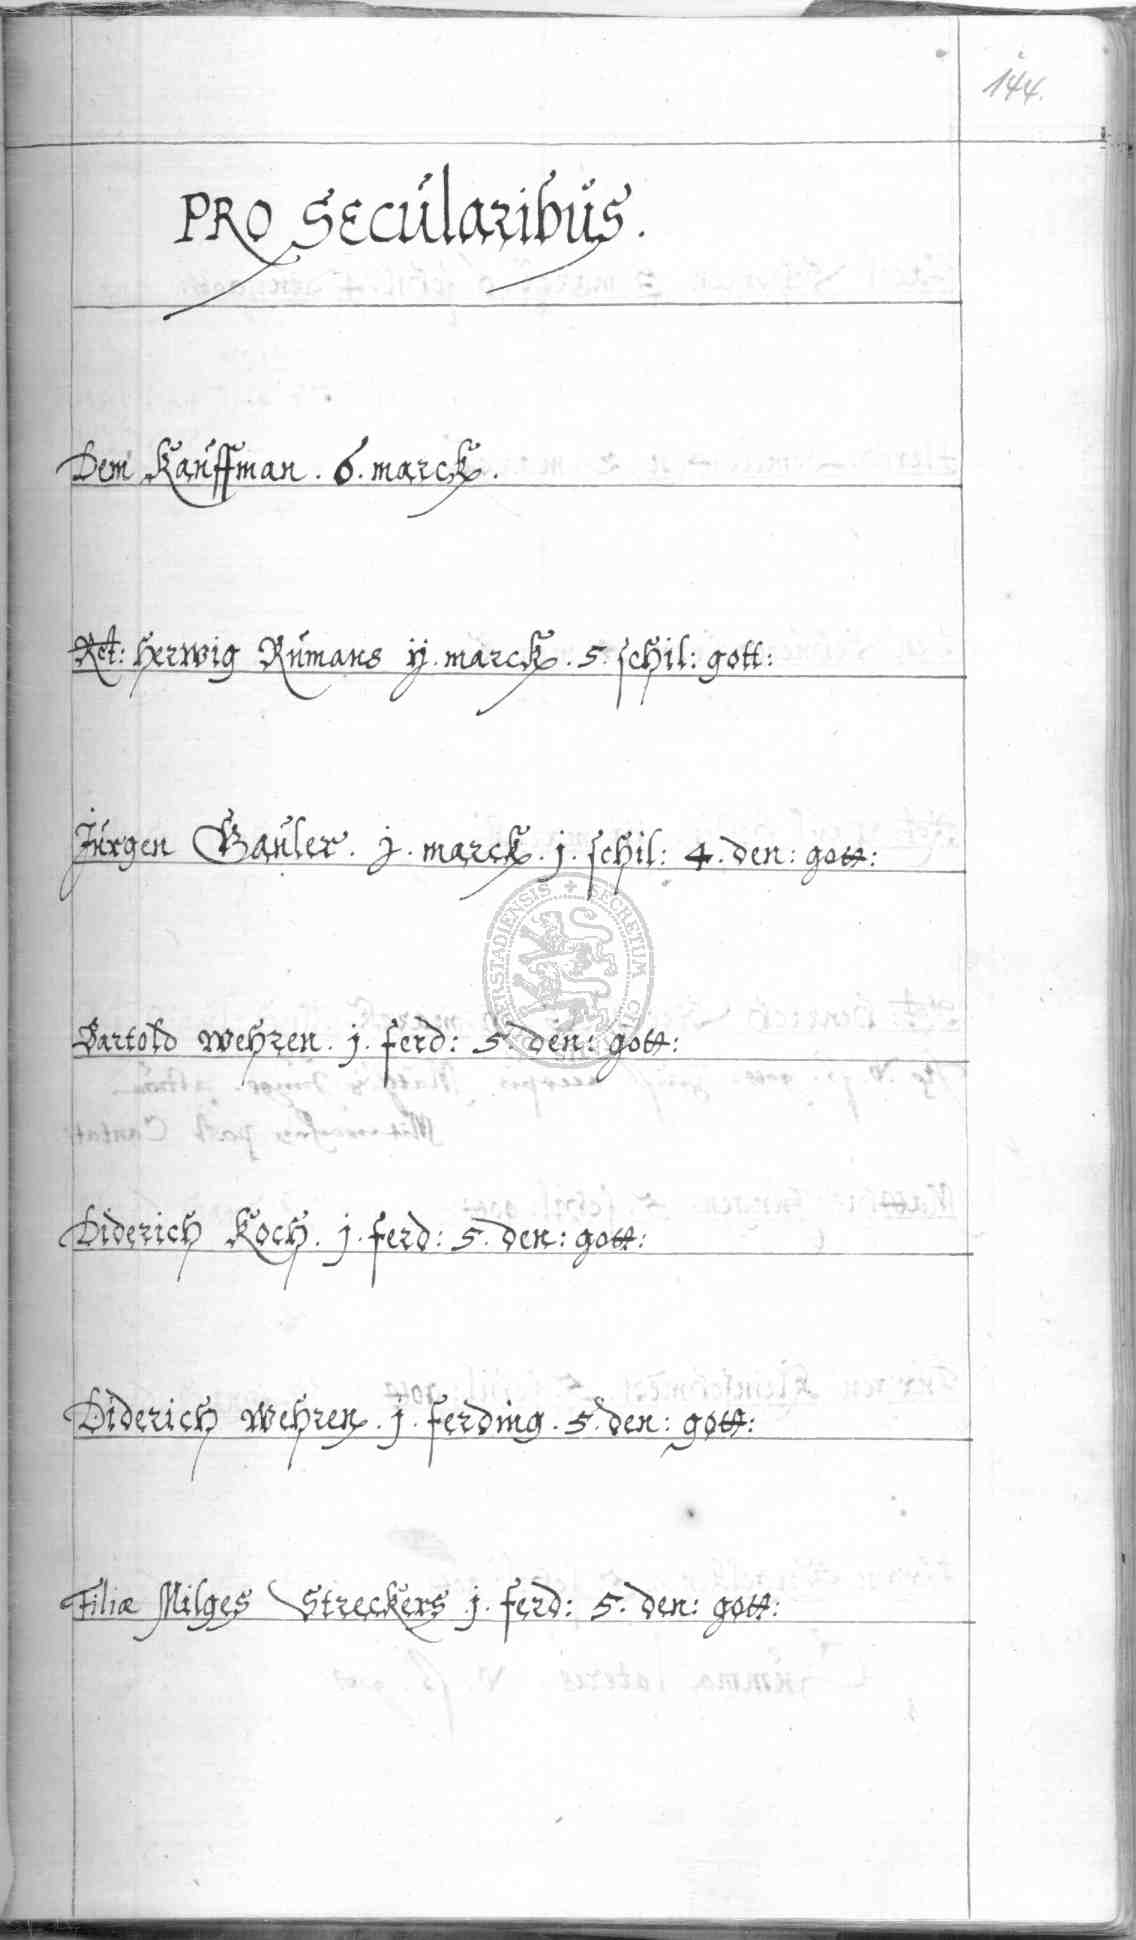 144.
PRO SECULARIBUS.
Dem Kauffman. 6. marck.
Rct: Herwig Rümans ij. marck. 5. schil: gott:
Jürgen Gauler. j. marck. j. schil: 4. den: gott:
Bartold Wehren. j. ferd: 5. den: gott:
Diderich Koch. j. ferd: 5. den: gott:
Diderich Wehren. j. ferding. 5. den: gott:
Filiæ Milges Streckers j. ferd: 5. den: gott:
SECRETUM